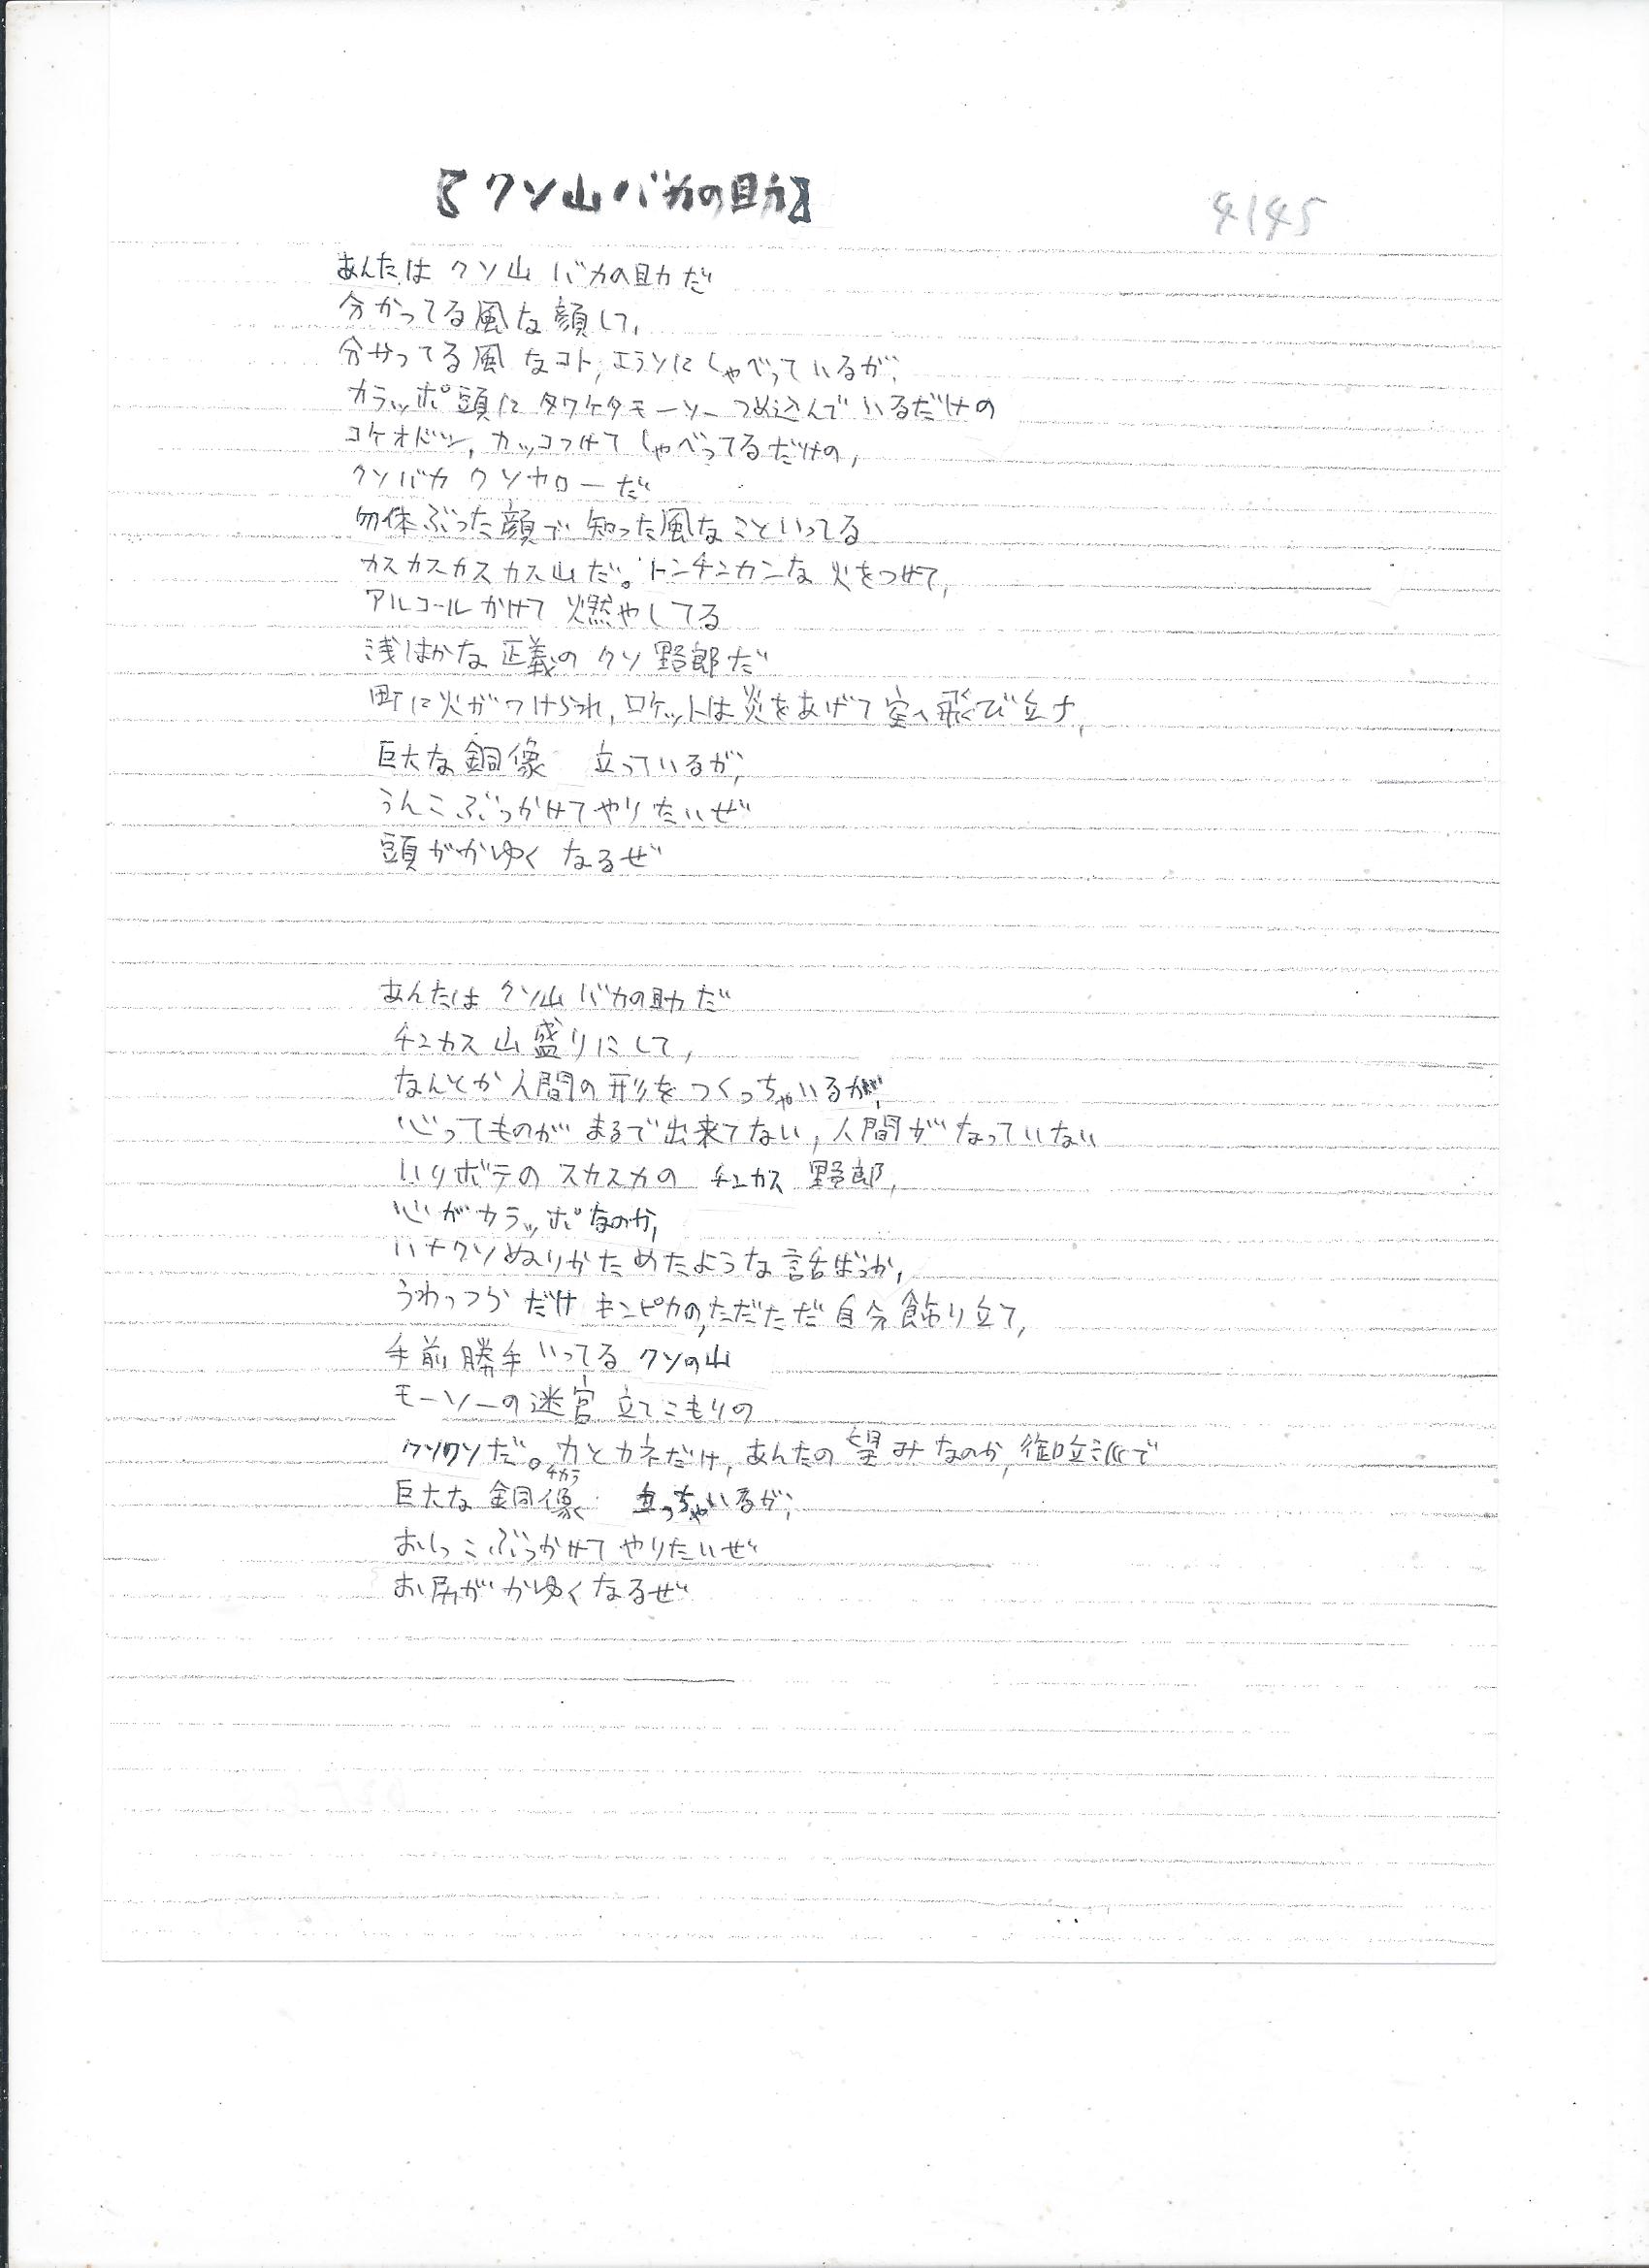 【クソ山バカの助】
4145
あんたは クソ山 バカの助だ
分かってる風な顔して,
分かってる風なコト,エラソにしゃべっているが,
カラッポ頭にタワケタモーソーつめ込んでいるだけの
コケオドシ,カッコつけてしゃべってるだけの,
クソバカ クソヤローだ
勿体ぶった顔で 知った風なこといってる
カスカスカスカス山だ。トンチンカンな 火をつけて,
アルコールかけて 燃やしてる
浅はかな 正義の クソ 野郎だ
町に火がつけられ,ロケットは炎をあげて空へ飛び立ち,
巨大な銅像 立っているが,
うんこぶっかけてやりたいぜ
頭がかゆく なるぜ
あんたは クソ山 バカの助だ
チンカス 山盛りにして,
なんとか人間の形をつくっちゃいるが,
心ってものが まるで出来てない,人間がなっていない
ハリボテの スカスカの チンカス 野郎,
心がカラッポなのか,
ハナクソぬりかためたような話ばっか,
うわっつらだけ キンピカの,ただただ自分飾り立て,
手前勝手いってる クソの山
モーソーの迷宮 立てこもりの
クソクソだ。力とカネだけ,あんたの望みなのか,御立派で
チカラ
巨大な 銅像 立っちゃいるが,
おしっこぶっかけてやりたいぜ
お尻が かゆくなるぜ